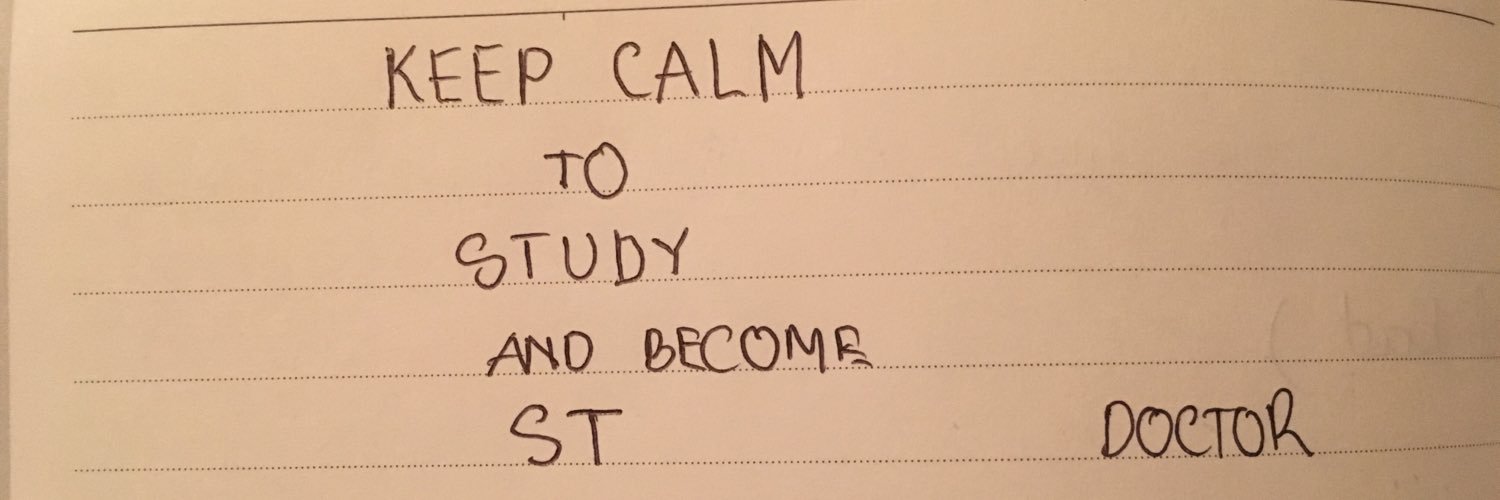 KEEP CALM
TO
STUDY
AND BECOME
ST DOCTOR